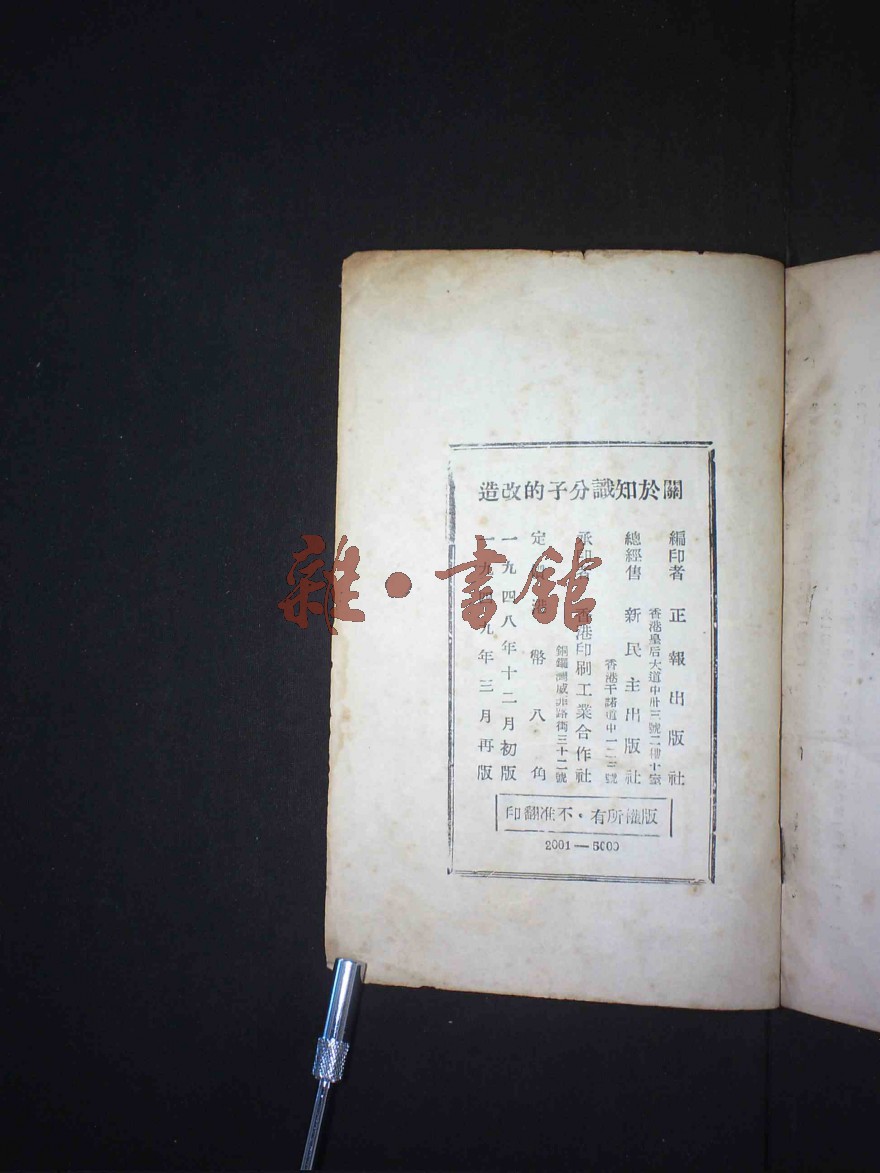 關於知識分子的改造
編印者 正報出版社
香港皇后大道中卅三號二樓十室
總經售 新民主出版社
香港干諾道中一二三號
承印者 香港印刷工業合作社
銅鑼灣威非路街三十二號
定價港幣八角
一九四八年十二月初版
一九四九年三月再版
版權所有・不准翻印
2001—5000
雜・書館